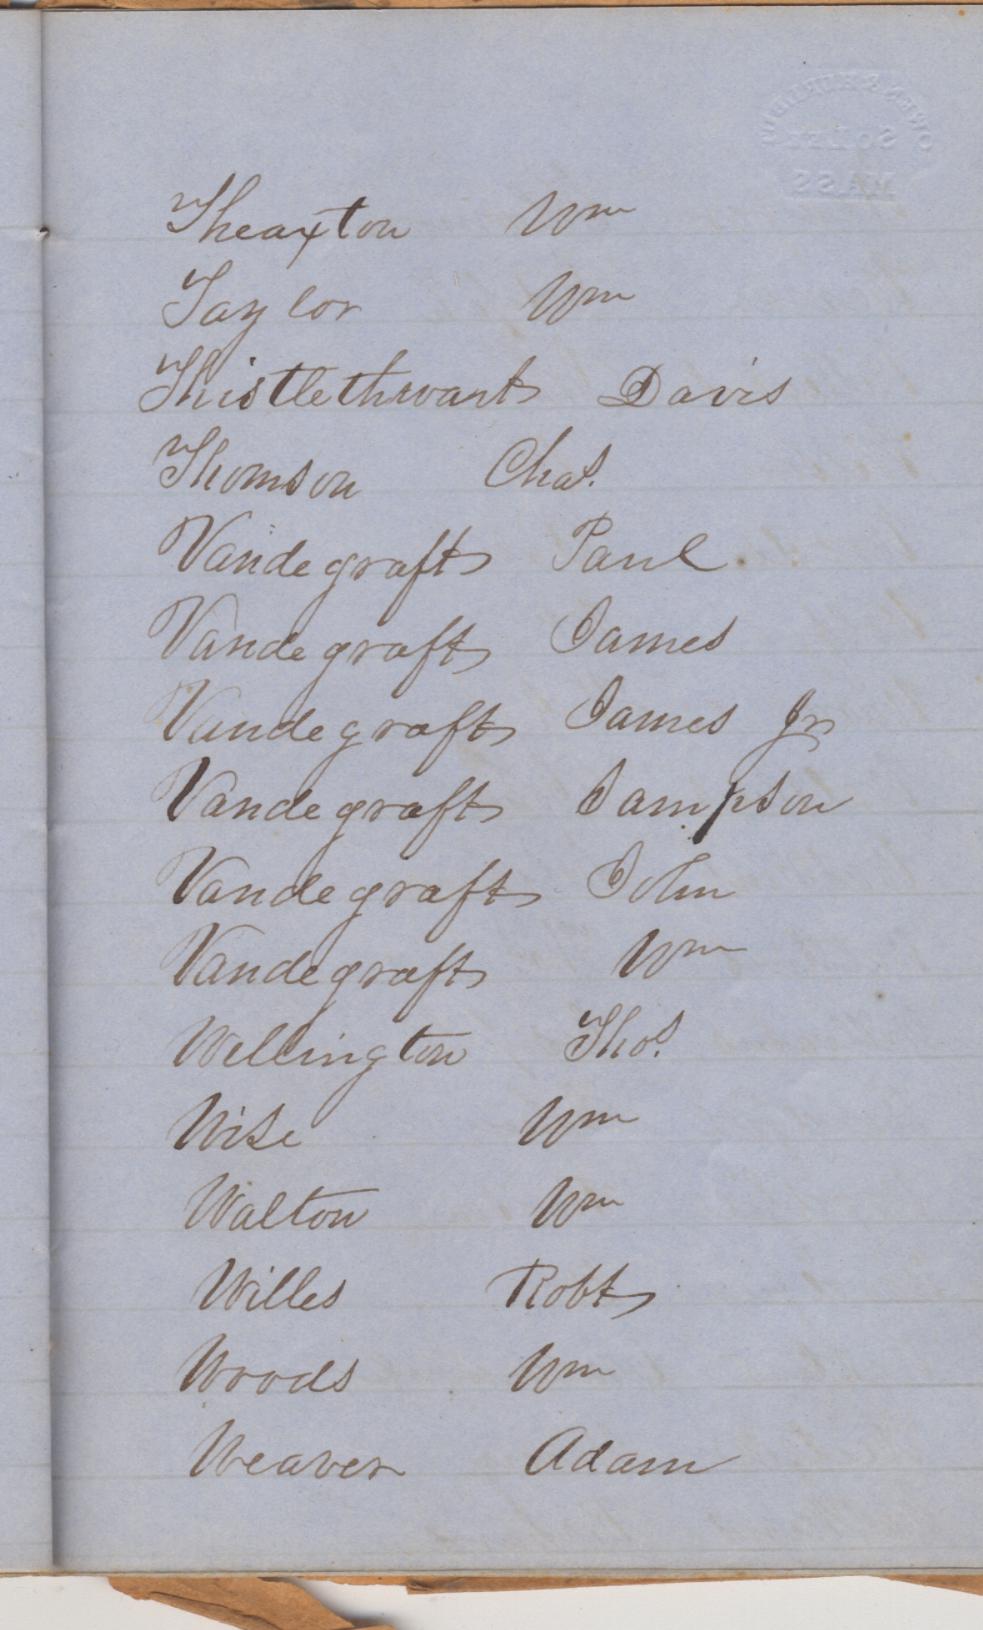 Theaxton Wm
Taylor Wm
Thistlethwart Davis
Thomson Chas.
Vandegraft Paul
Vandegraft James
Vandegraft James Jr
Vandegraft Sampson
Vandegraft John
Vandegraft Wm
Wellington Thos.
Wise Wm
Walton Wm
Willes Robt
Woods Wm
Weaver Adam